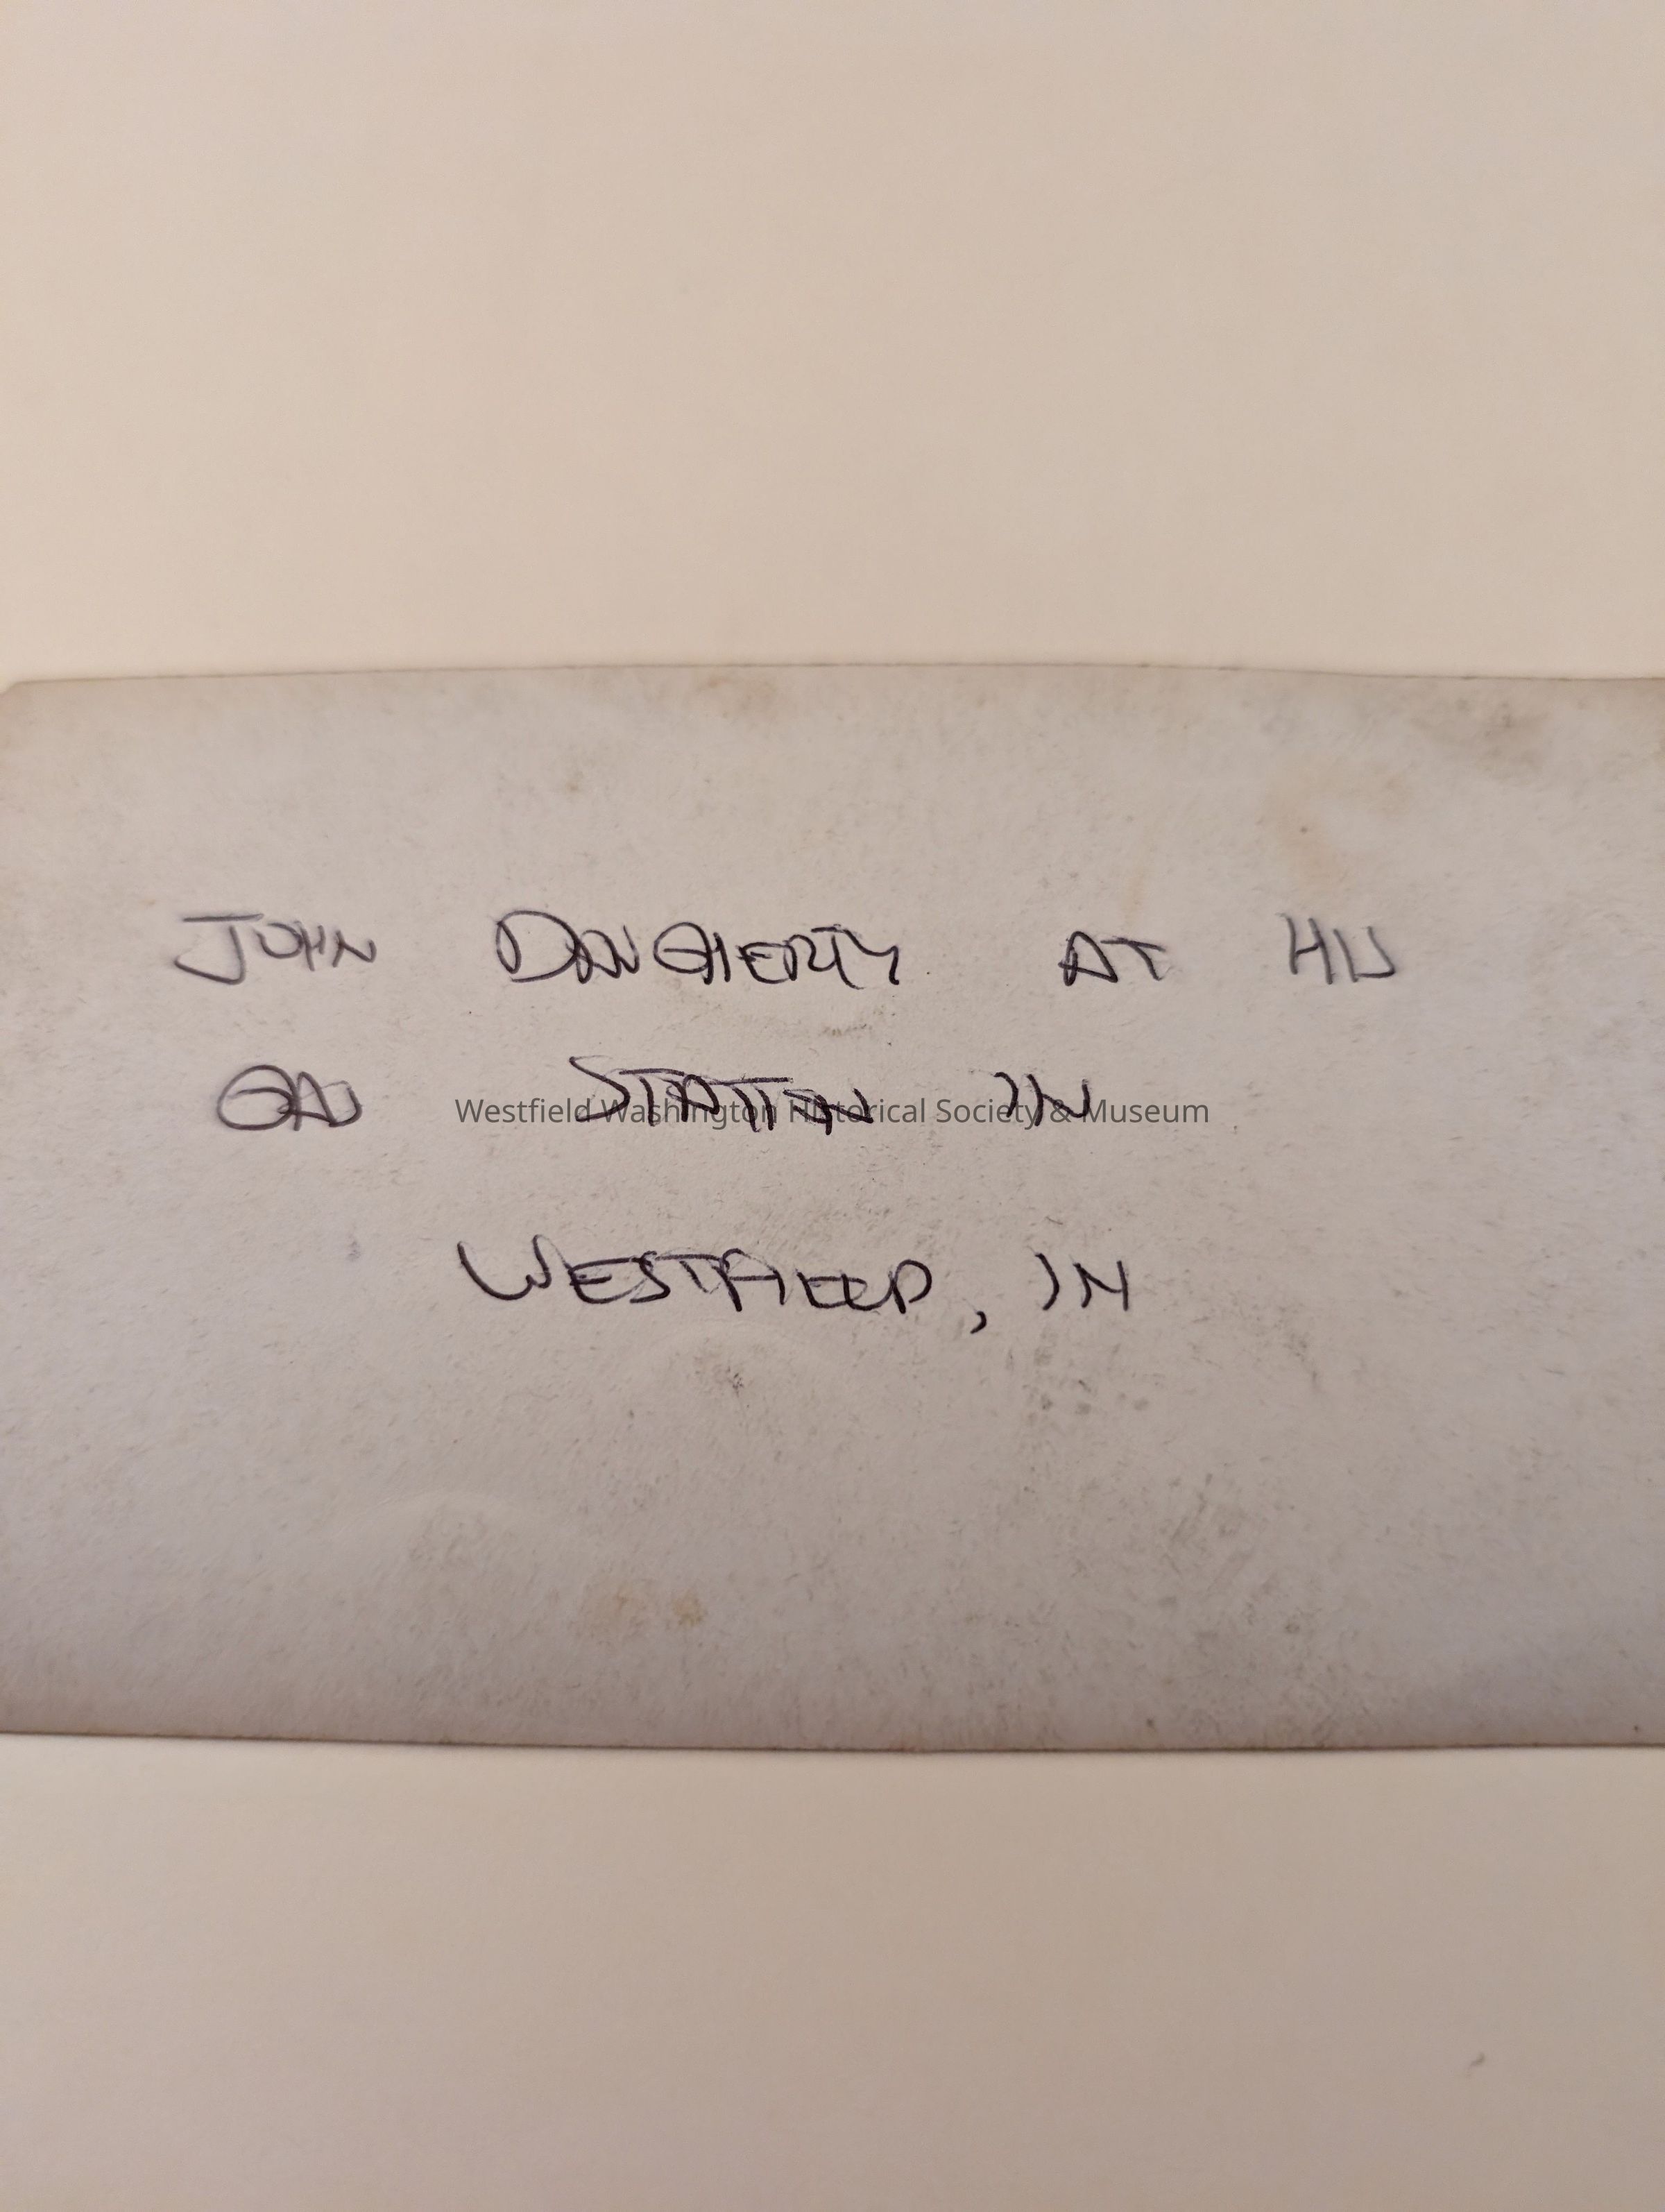 JOHN DAUGHERTY AT HIS
GAS STATION IN
Westfield Washington Historical Society & Museum
WESTFIELD, IN